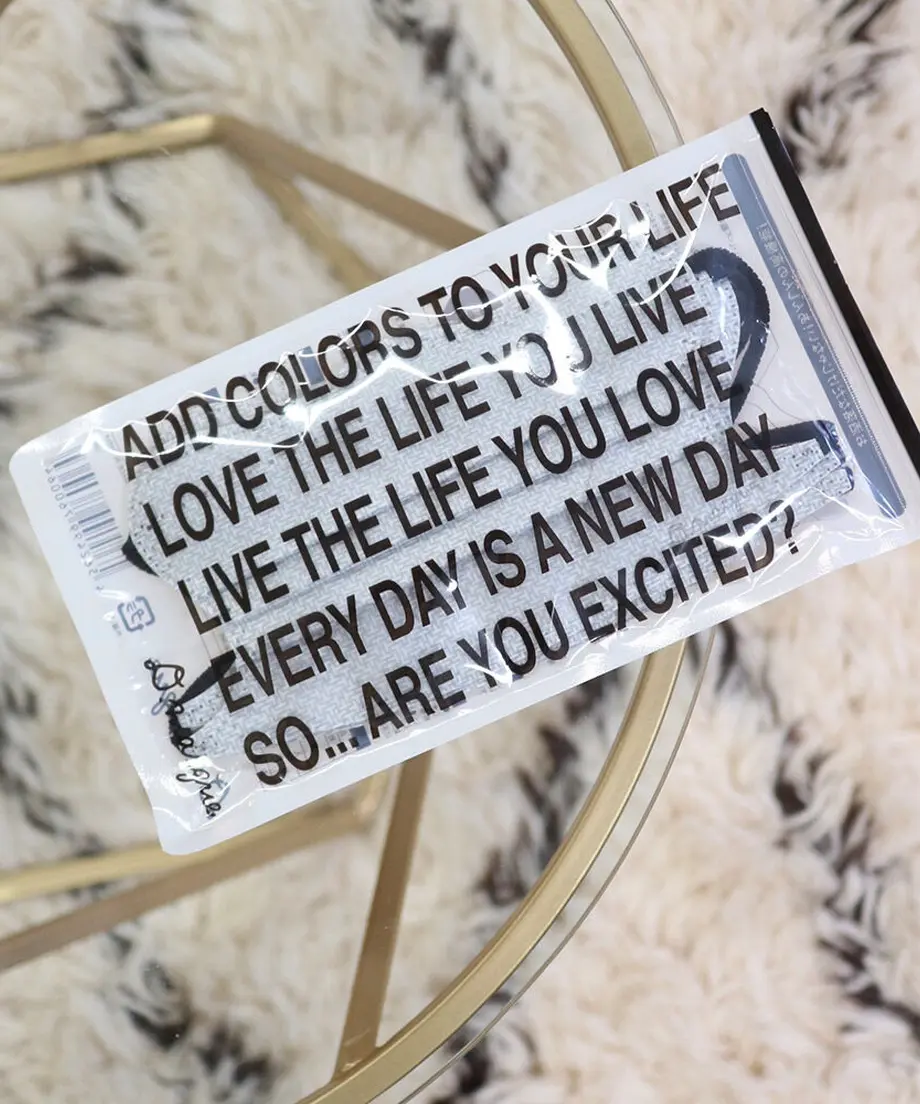 ADD COLORS TO YOUR LIFE
LOVE THE LIFE YOU LIVE
LIVE THE LIFE YOU LOVE
EVERY DAY IS A NEW DAY
SO... ARE YOU EXCITED?